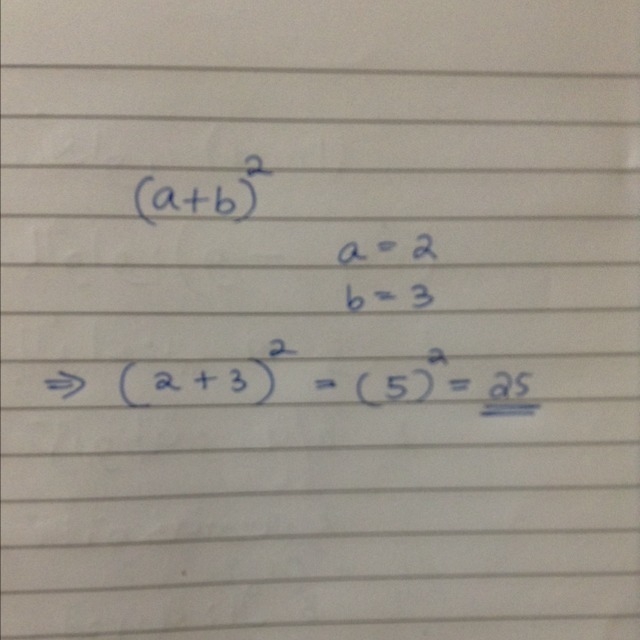 (a+b)²
a = 2
b = 3
⇒ (2 + 3)² = (5)² = 25